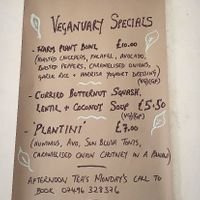 VEGANUARY SPECIALS
- WARM PLANT BOWL £10.00
(ROASTED CHICKPEAS, FALAFEL, AVOCADO,
ROASTED PEPPERS, CARAMELISED ONIONS,
GARLIC RICE + HARRISA YOGHURT DRESSING)
(VG/GF)
- CURRIED BUTTERNUT SQUASH,
LENTIL + COCONUT SOUP £5.50
(VG/GF)
- 'PLANTINI' £7.00
(HUMMUS, AVO, SUN BLUSH TOMTS,
CARAMELISED ONION CHUTNEY IN A PANINI)
AFTERNOON TEA'S MONDAY'S CALL TO
BOOK 02496 328326